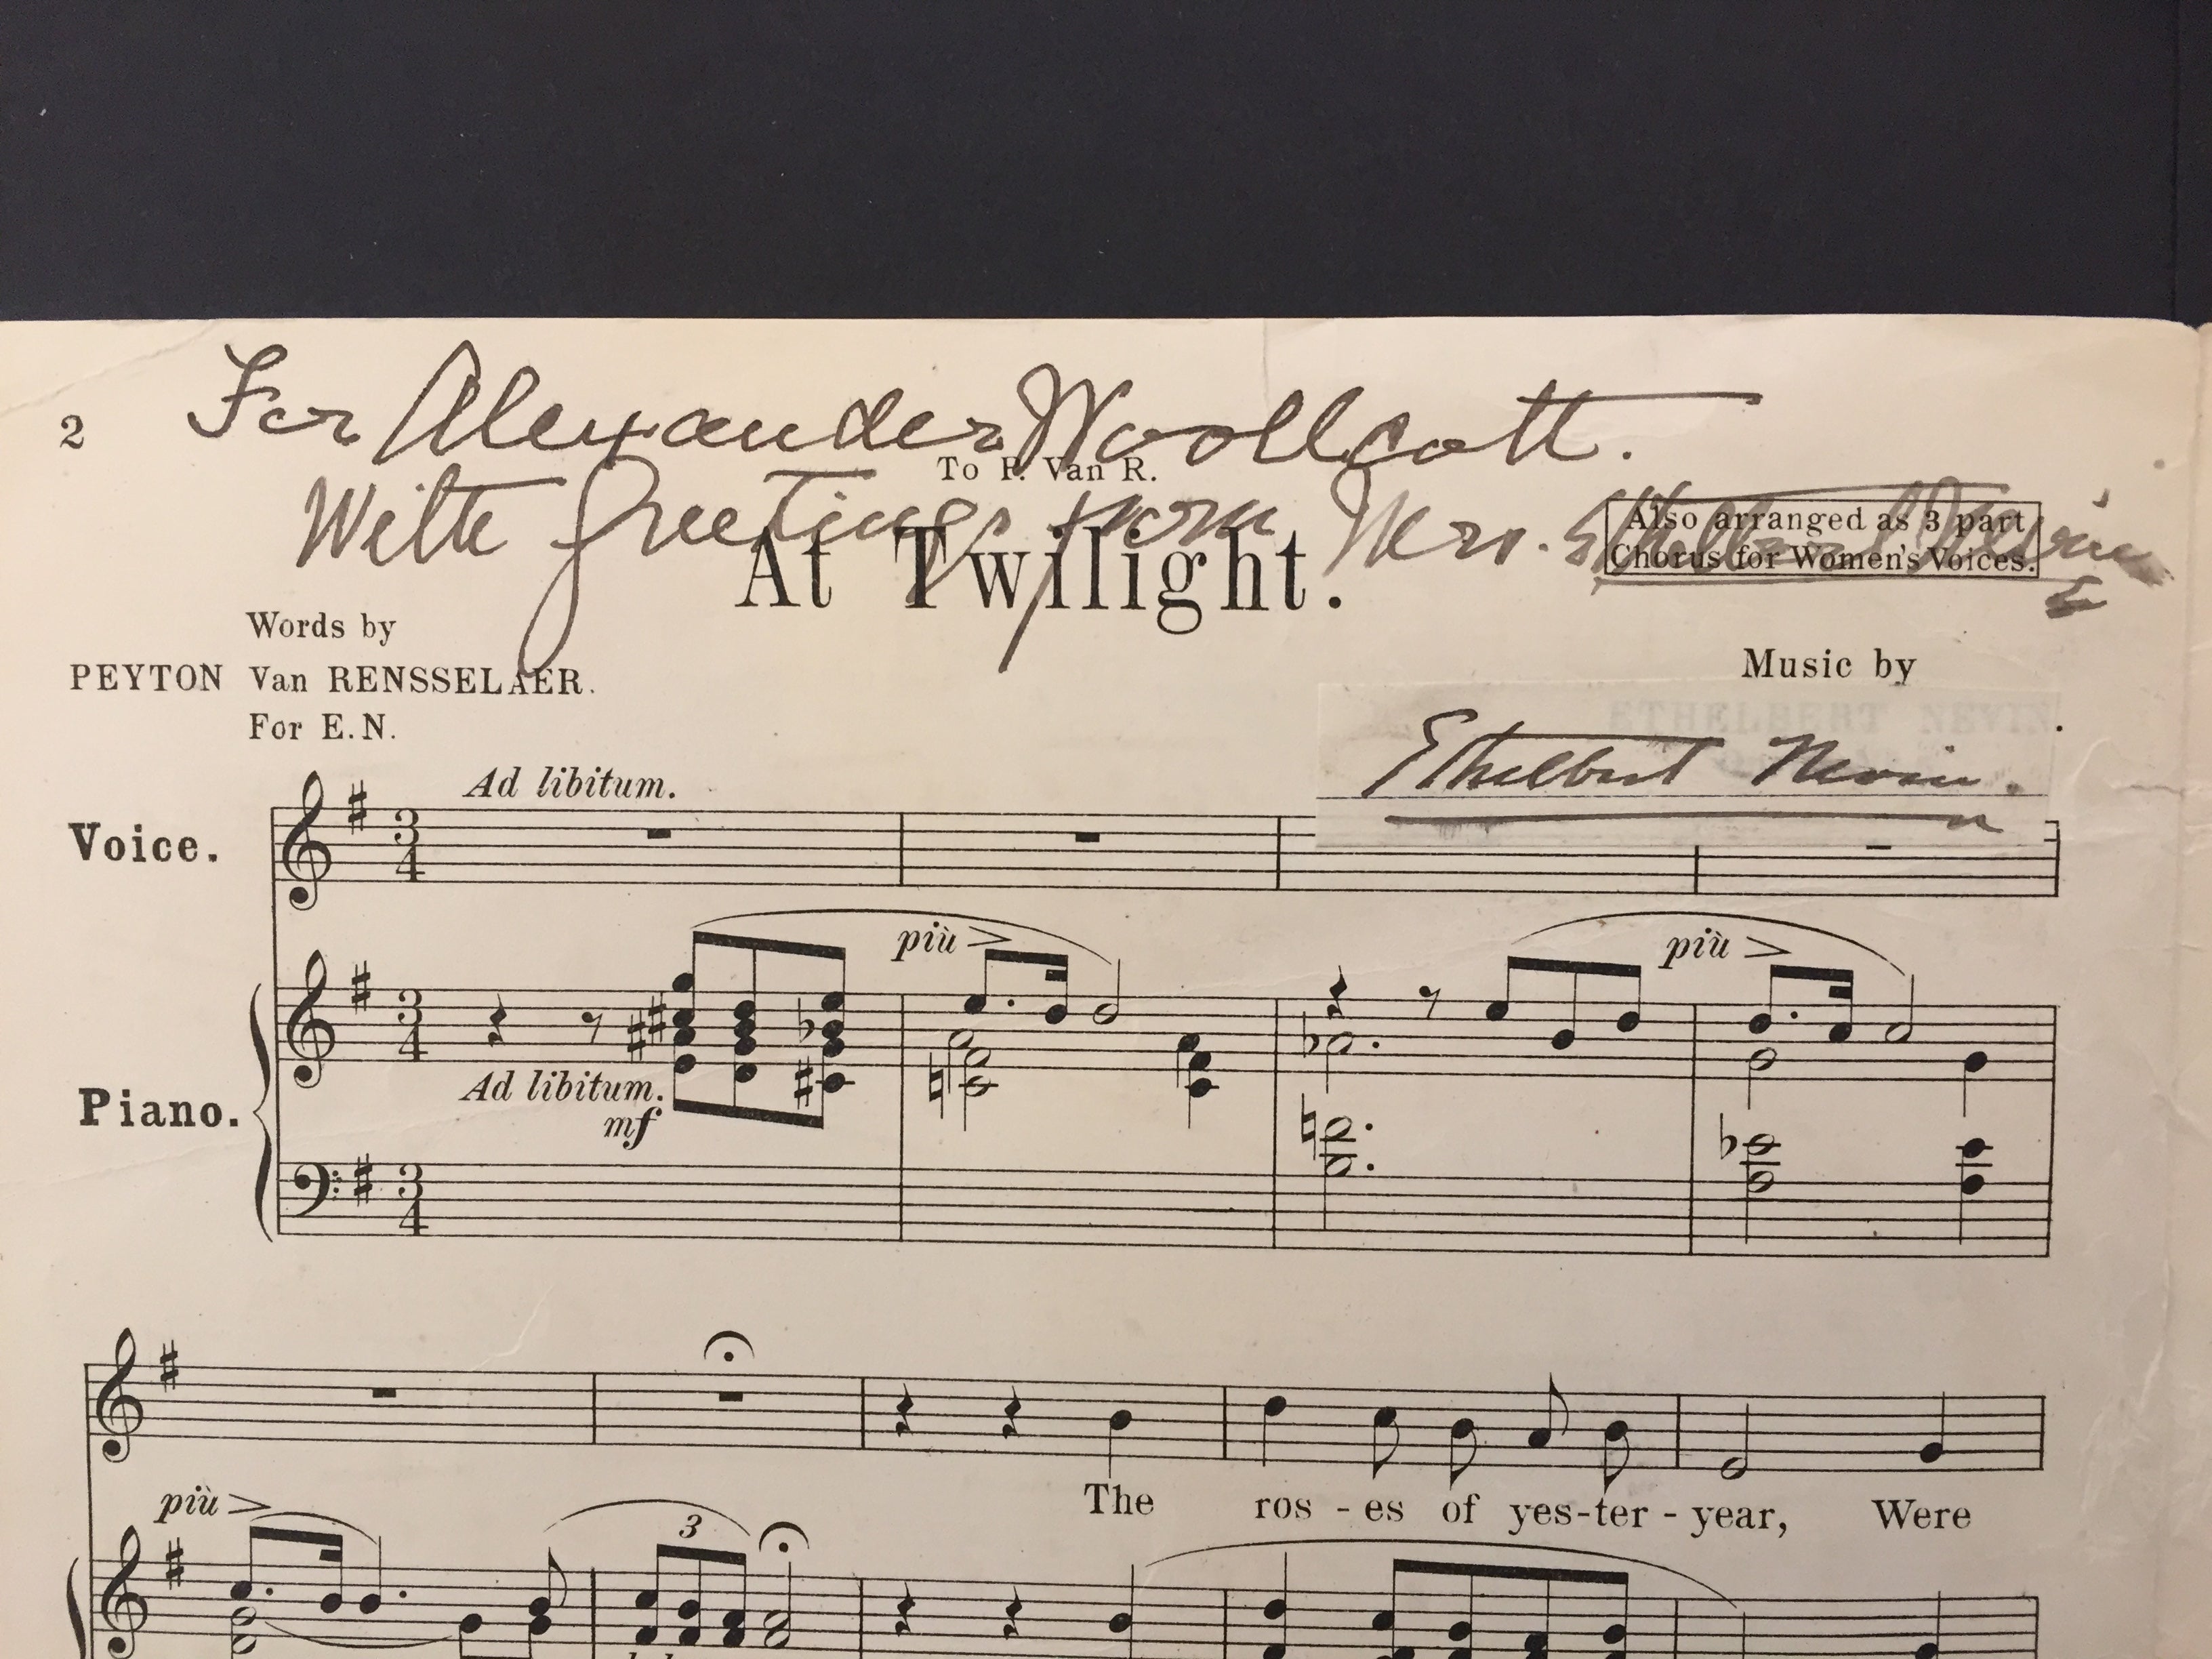 2
For Alexander Woollcott.
To P. Van R.
With greetings from Mrs. Ethelbert Nevin
Also arranged as 3 part
Chorus for Women's Voices.
At Twilight.
Words by
PEYTON Van RENSSELAER.
For E.N.
Music by
ETHELBERT NEVIN.
Ethelbert Nevin.
Ad libitum.
Voice.
3
4
più
più
3
4
Ad libitum.
mf
Piano.
3
4
The ros - es of yes-ter - year, Were
più
3